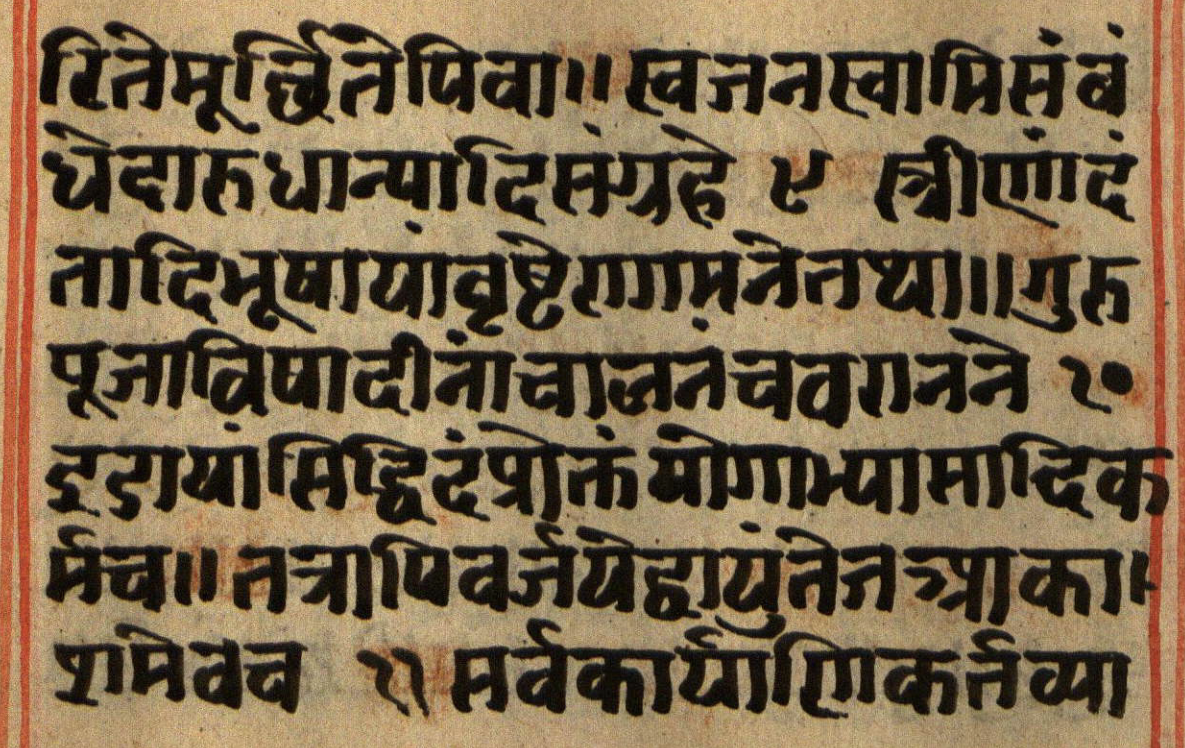 रितेमूर्छितेपिवा॥ स्वजनस्वामिसंबं
धेदारुधान्यादिसंग्रहे ९ स्त्रीणांदं
तादिभूषायांवृष्टेरागमनेतथा॥ गुरु
पूजाविषादीनांचालनंचवरानने २०
इडायांसिद्धिदंप्रोक्तंयोगाभ्यासादिक
र्मच॥ तत्रापिवर्जयेद्वायुंतेजआका
शमेवच २१ सर्वकार्याणिकर्तव्या